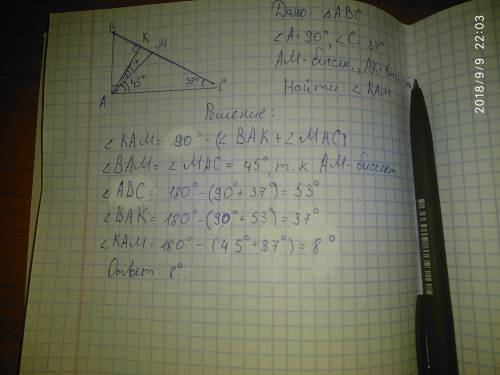 B
K
M
45°
37°
A
C
Дано: △ABC
∠A = 90°, ∠C = 37°
AM - биссек., AK -
Найти: ∠KAM
Решение:
∠KAM = 90° - (∠BAK + ∠MAC)
∠BAM = ∠MAC = 45°, т.к AM - биссект
∠ABC = 180° - (90° + 37°) = 53°
∠BAK = 180° - (90° + 53°) = 37°
∠KAM = 180° - (45° + 37°) = 8°
Ответ: 8°
2018/9/9 22:03